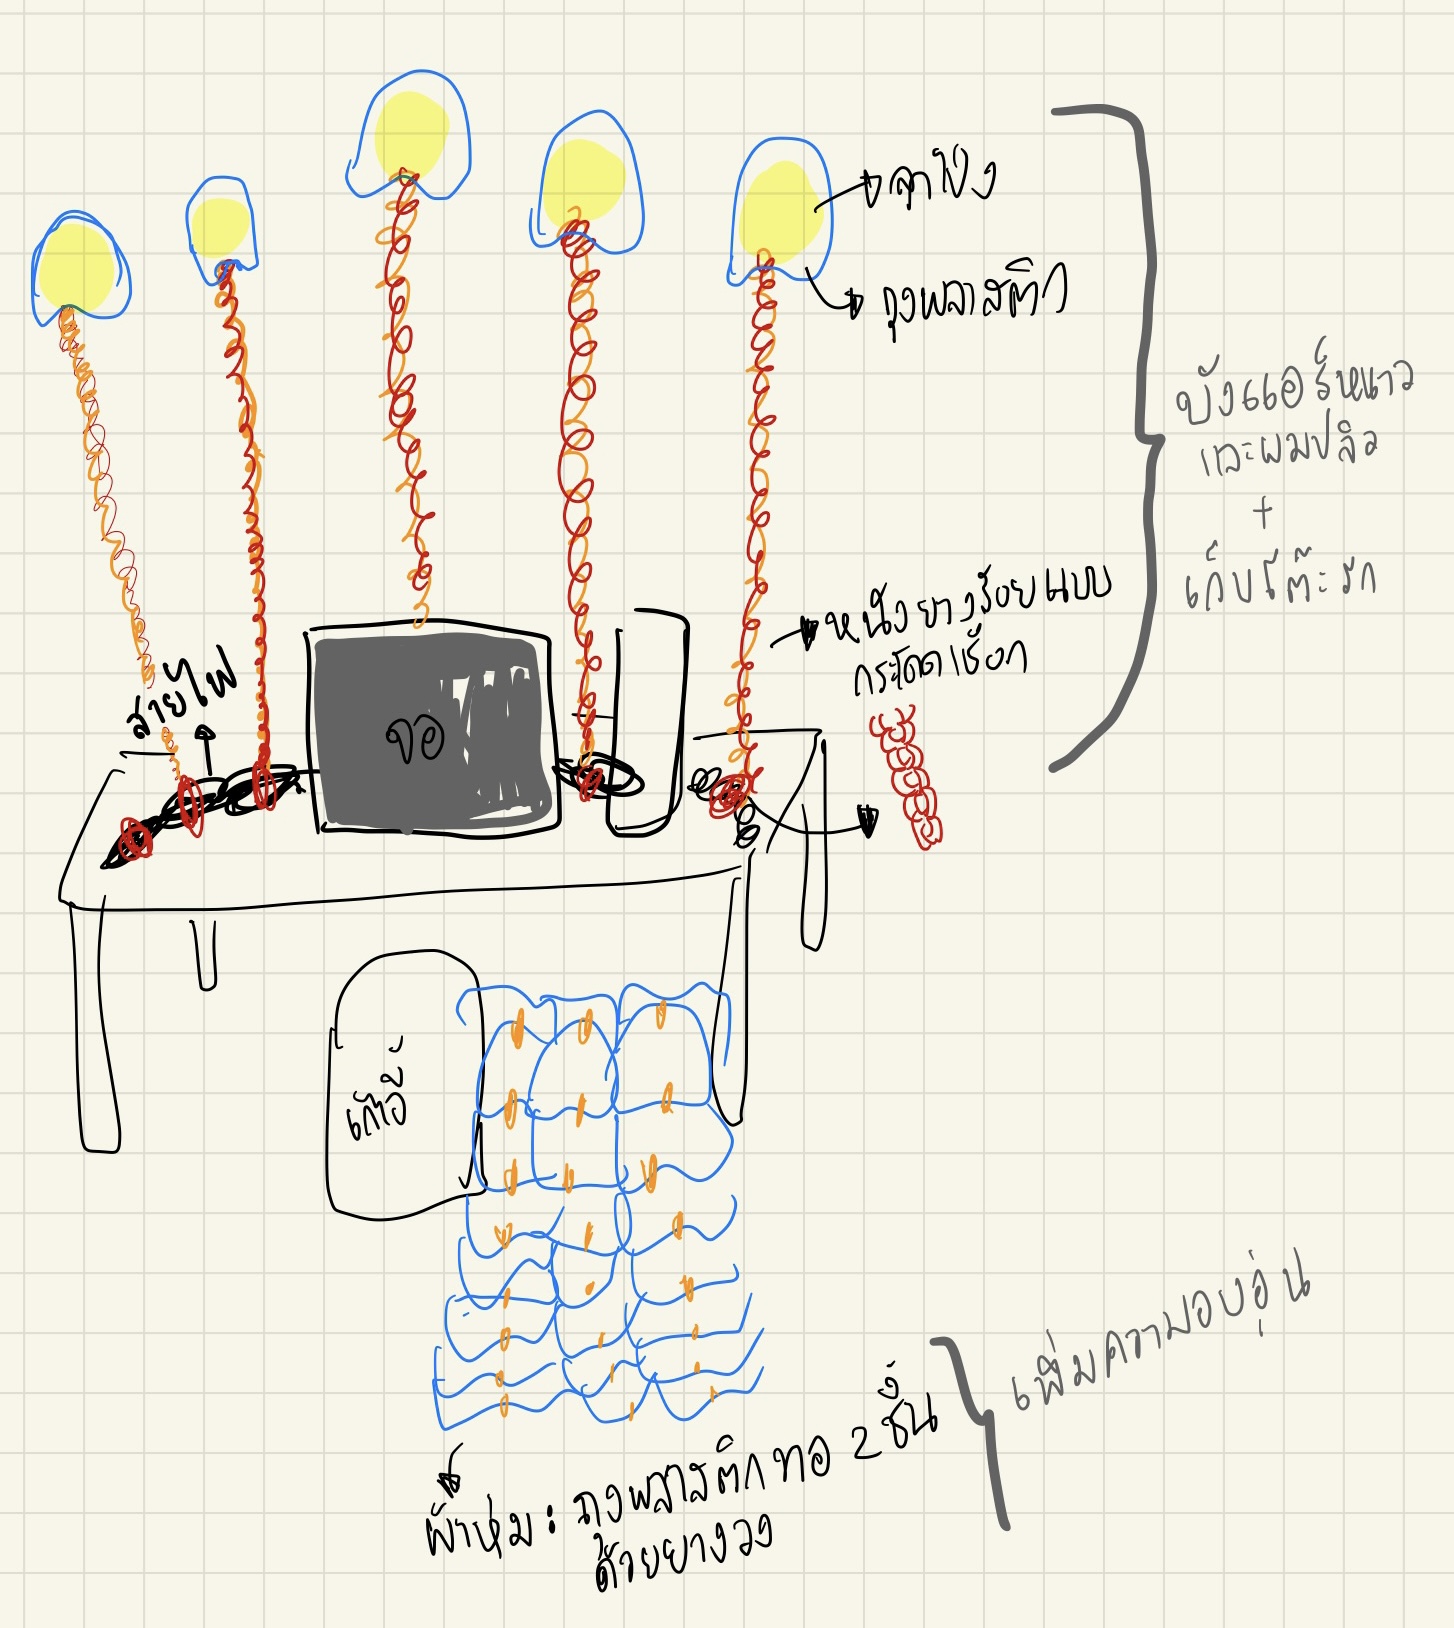 ลูกโป่ง
ถุงพลาสติก
บังแอร์หนาว
และผมปลิว
+
เก็บโต๊ะรก
หนังยางร้อยแบบ
กระโดดเชือก
สายไฟ
จอ
เก้าอี้
เพิ่มความอบอุ่น
ผ้าห่ม : ถุงพลาสติกทอ 2 ชั้น
ด้วยยางวง